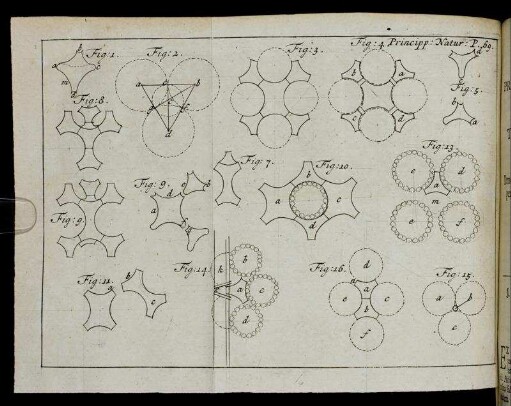 Fig: 4. Principp: Natur: P. 69.
Fig: 1.
Fig: 2.
Fig: 3.
Fig: 5.
Fig: 8.
Fig: 7.
Fig: 10.
Fig: 13.
Fig: 9.
Fig: 9.
Fig: 11.
Fig: 14.
Fig: 16.
Fig: 15.
a
b
c
m
a
b
d
b
a
c
d
a
b
a
d
a
b
c
a
b
c
d
e
d
a
m
e
f
b
c
h
b
a
c
d
d
e
a
c
b
f
a
b
c